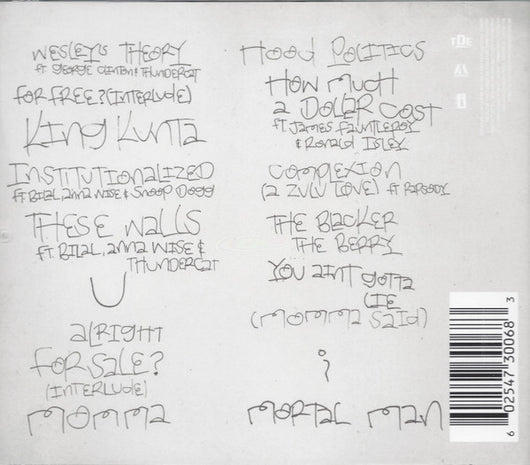 WESLEY'S THEORY
ft GEORGE CLINTON & THUNDERCAT
FOR FREE? (INTERLUDE)
KING KUNTA
INSTITUTIONALIZED
ft BILAL, ANNA WISE & SNOOP DOGG
THESE WALLS
ft. BILAL, ANNA WISE &
THUNDERCAT
U
ALRIGHT
FOR SALE?
(INTERLUDE)
MOMMA
HOOD POLITICS
HOW MUCH
A DOLLAR COST
ft. JAMES FAUNTLEROY
& RONALD ISLEY
COMPLEXION
(A ZULU LOVE) ft RAPSODY
THE BLACKER
THE BERRY
YOU AINT GOTTA
LIE
(MOMMA SAID)
i
MORTAL MAN
TDE
6 02547 30068 3